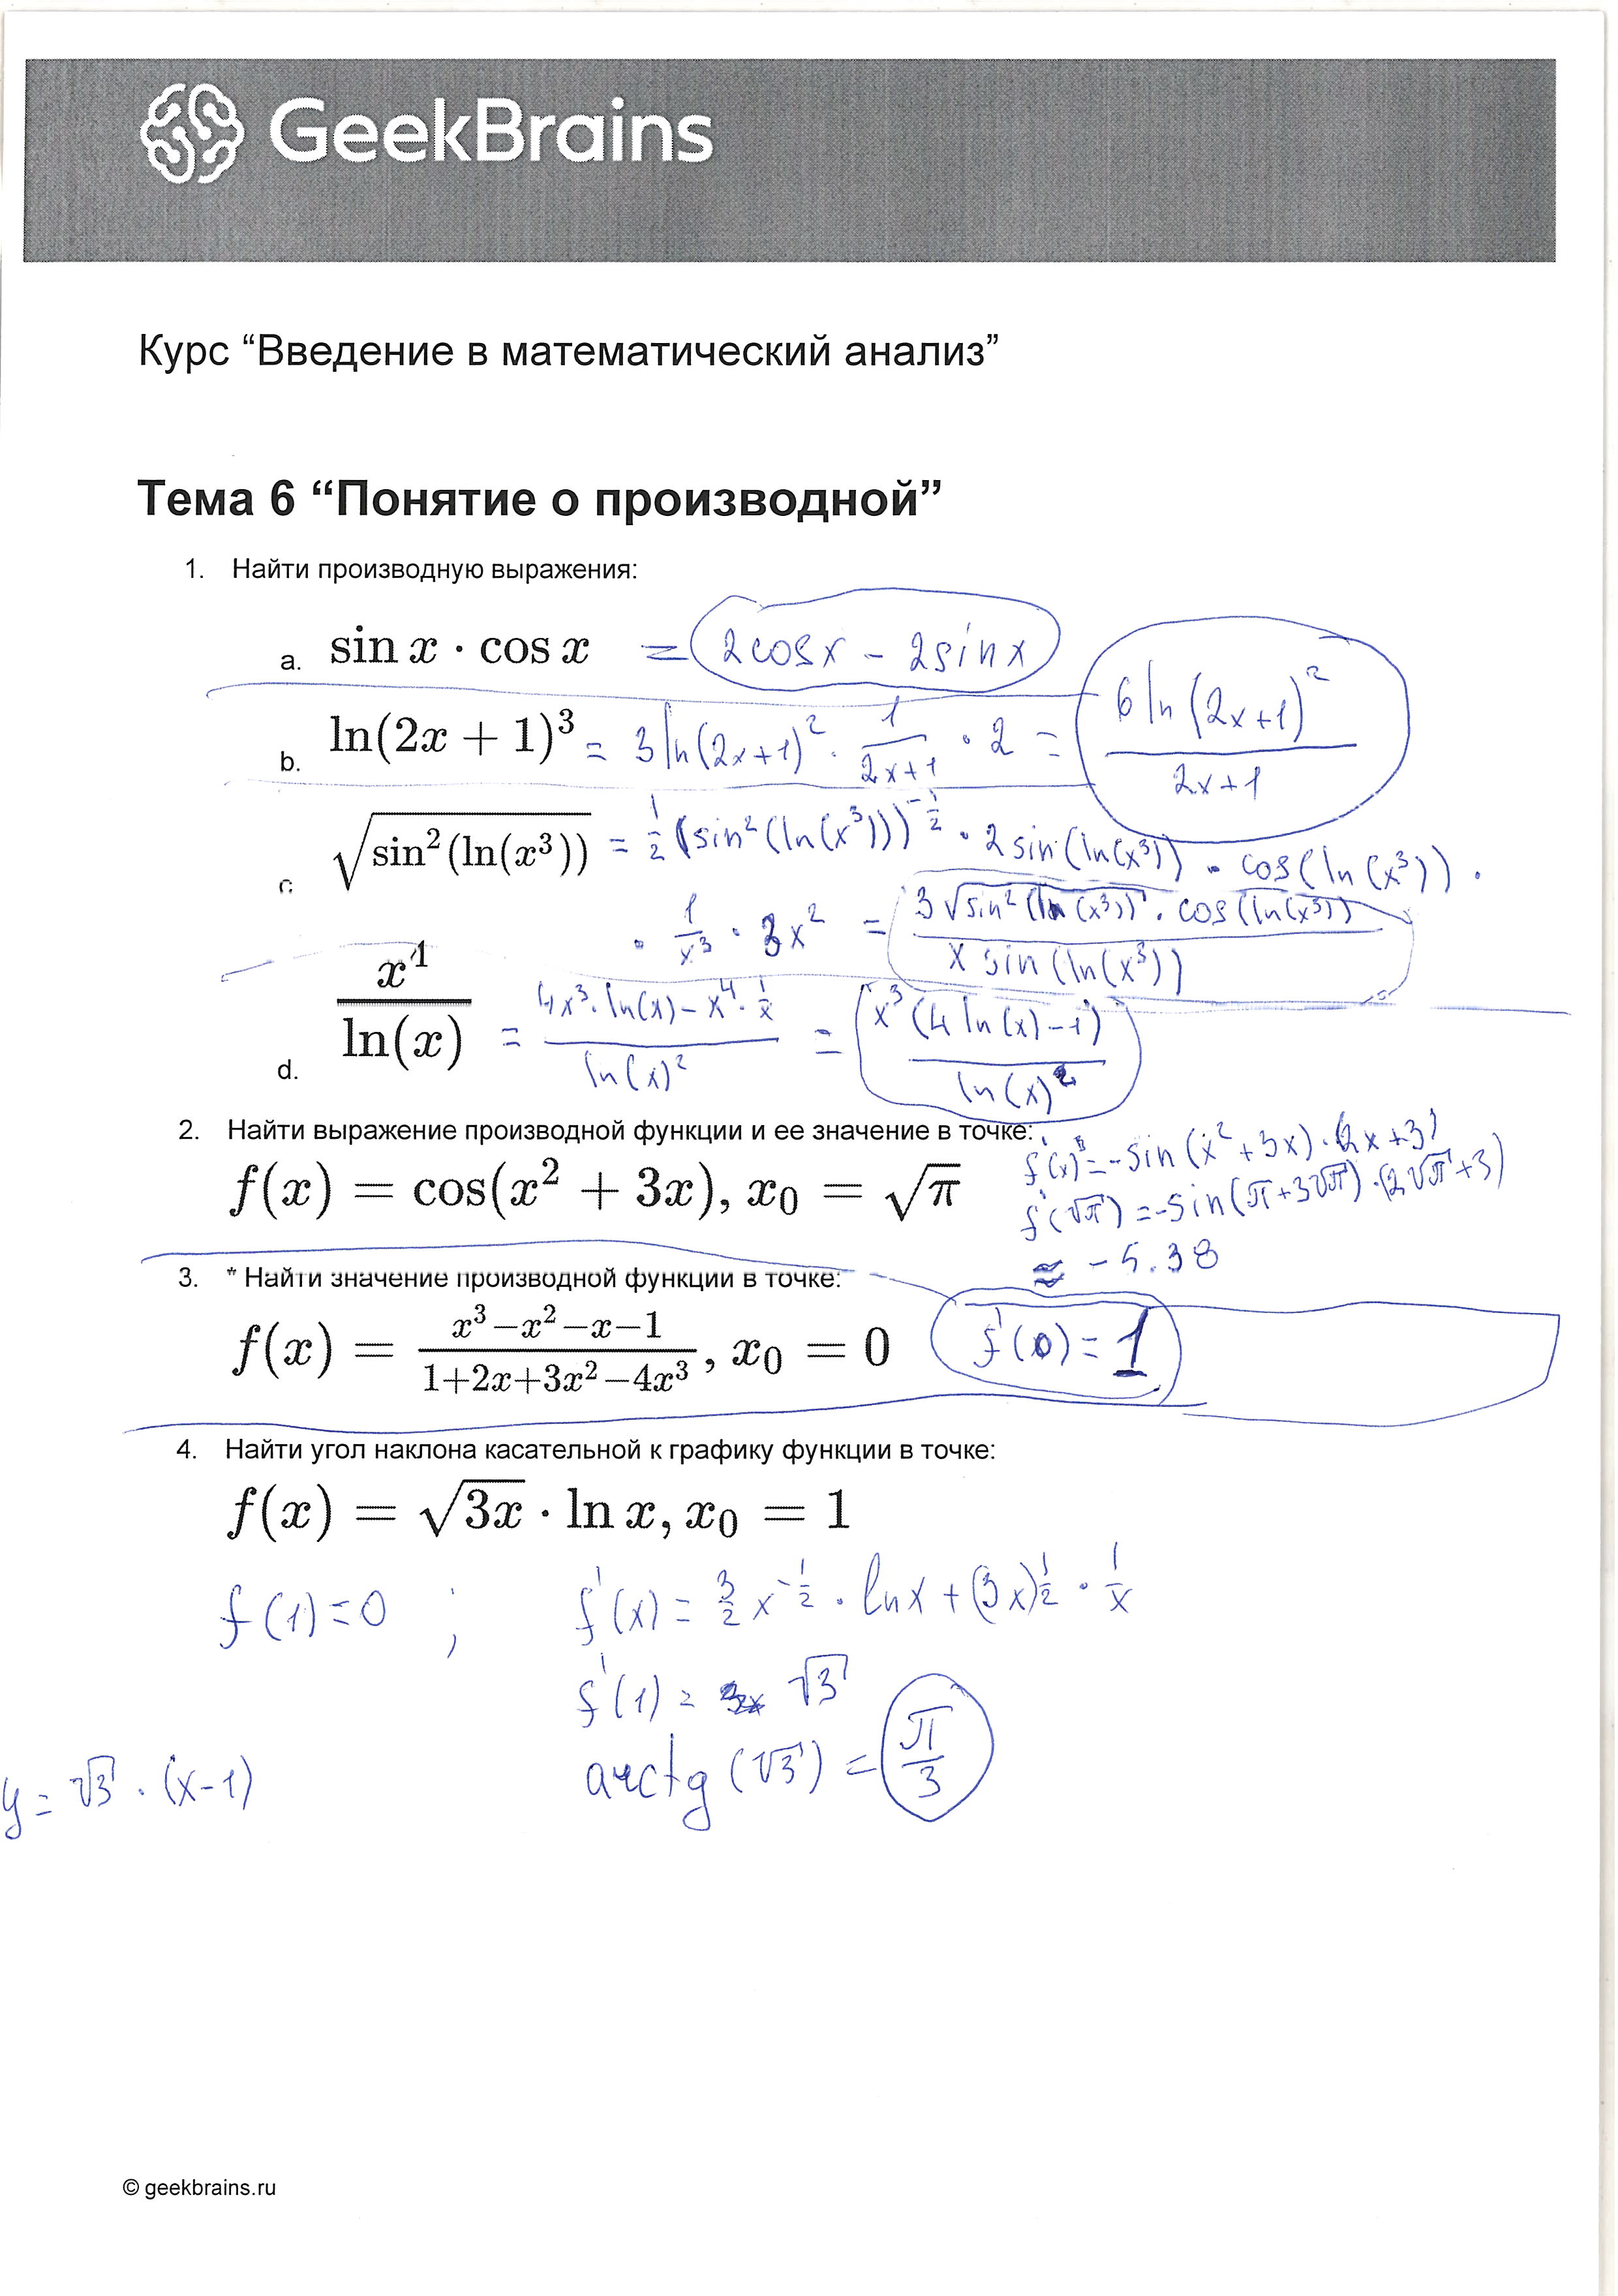 GeekBrains
Курс “Введение в математический анализ”
Тема 6 “Понятие о производной”
1. Найти производную выражения:
a. sin x · cos x = 2cosx - 2sinx
b. ln(2x + 1)³ = 3 ln(2x+1)² · 1/(2x+1) · 2 = 6 ln(2x+1)² / (2x+1)
c. √(sin²(ln(x³))) = 1/2 (sin²(ln(x³)))^(-1/2) · 2sin(ln(x³)) · cos(ln(x³)) ·
· 1/x³ · 3x² = 3√(sin²(ln(x³))) · cos(ln(x³)) / (x sin(ln(x³)))
d. x⁴/ln(x) = (4x³·ln(x) - x⁴·1/x) / ln(x)² = x³(4 ln(x) - 1) / ln(x)²
2. Найти выражение производной функции и ее значение в точке:
f(x) = cos(x² + 3x), x₀ = √π
f'(x) = -sin(x² + 3x)·(2x+3)
f'(√π) = -sin(π+3√π)·(2√π+3)
≈ -5.38
3. * Найти значение производной функции в точке:
f(x) = (x³−x²−x−1)/(1+2x+3x²−4x³), x₀ = 0 f'(0) = 1
4. Найти угол наклона касательной к графику функции в точке:
f(x) = √3x · ln x, x₀ = 1
f(1)=0 ; f'(x) = 3/2 x^(-1/2) · lnx + (3x)^(1/2) · 1/x
f'(1) = √3
arctg(√3) = π/3
y = √3 · (x-1)
© geekbrains.ru